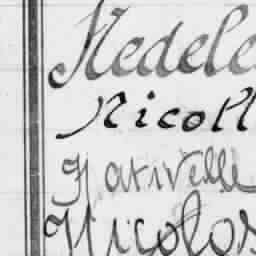 Nedele
Nicoll
Nativelle
Nicolos